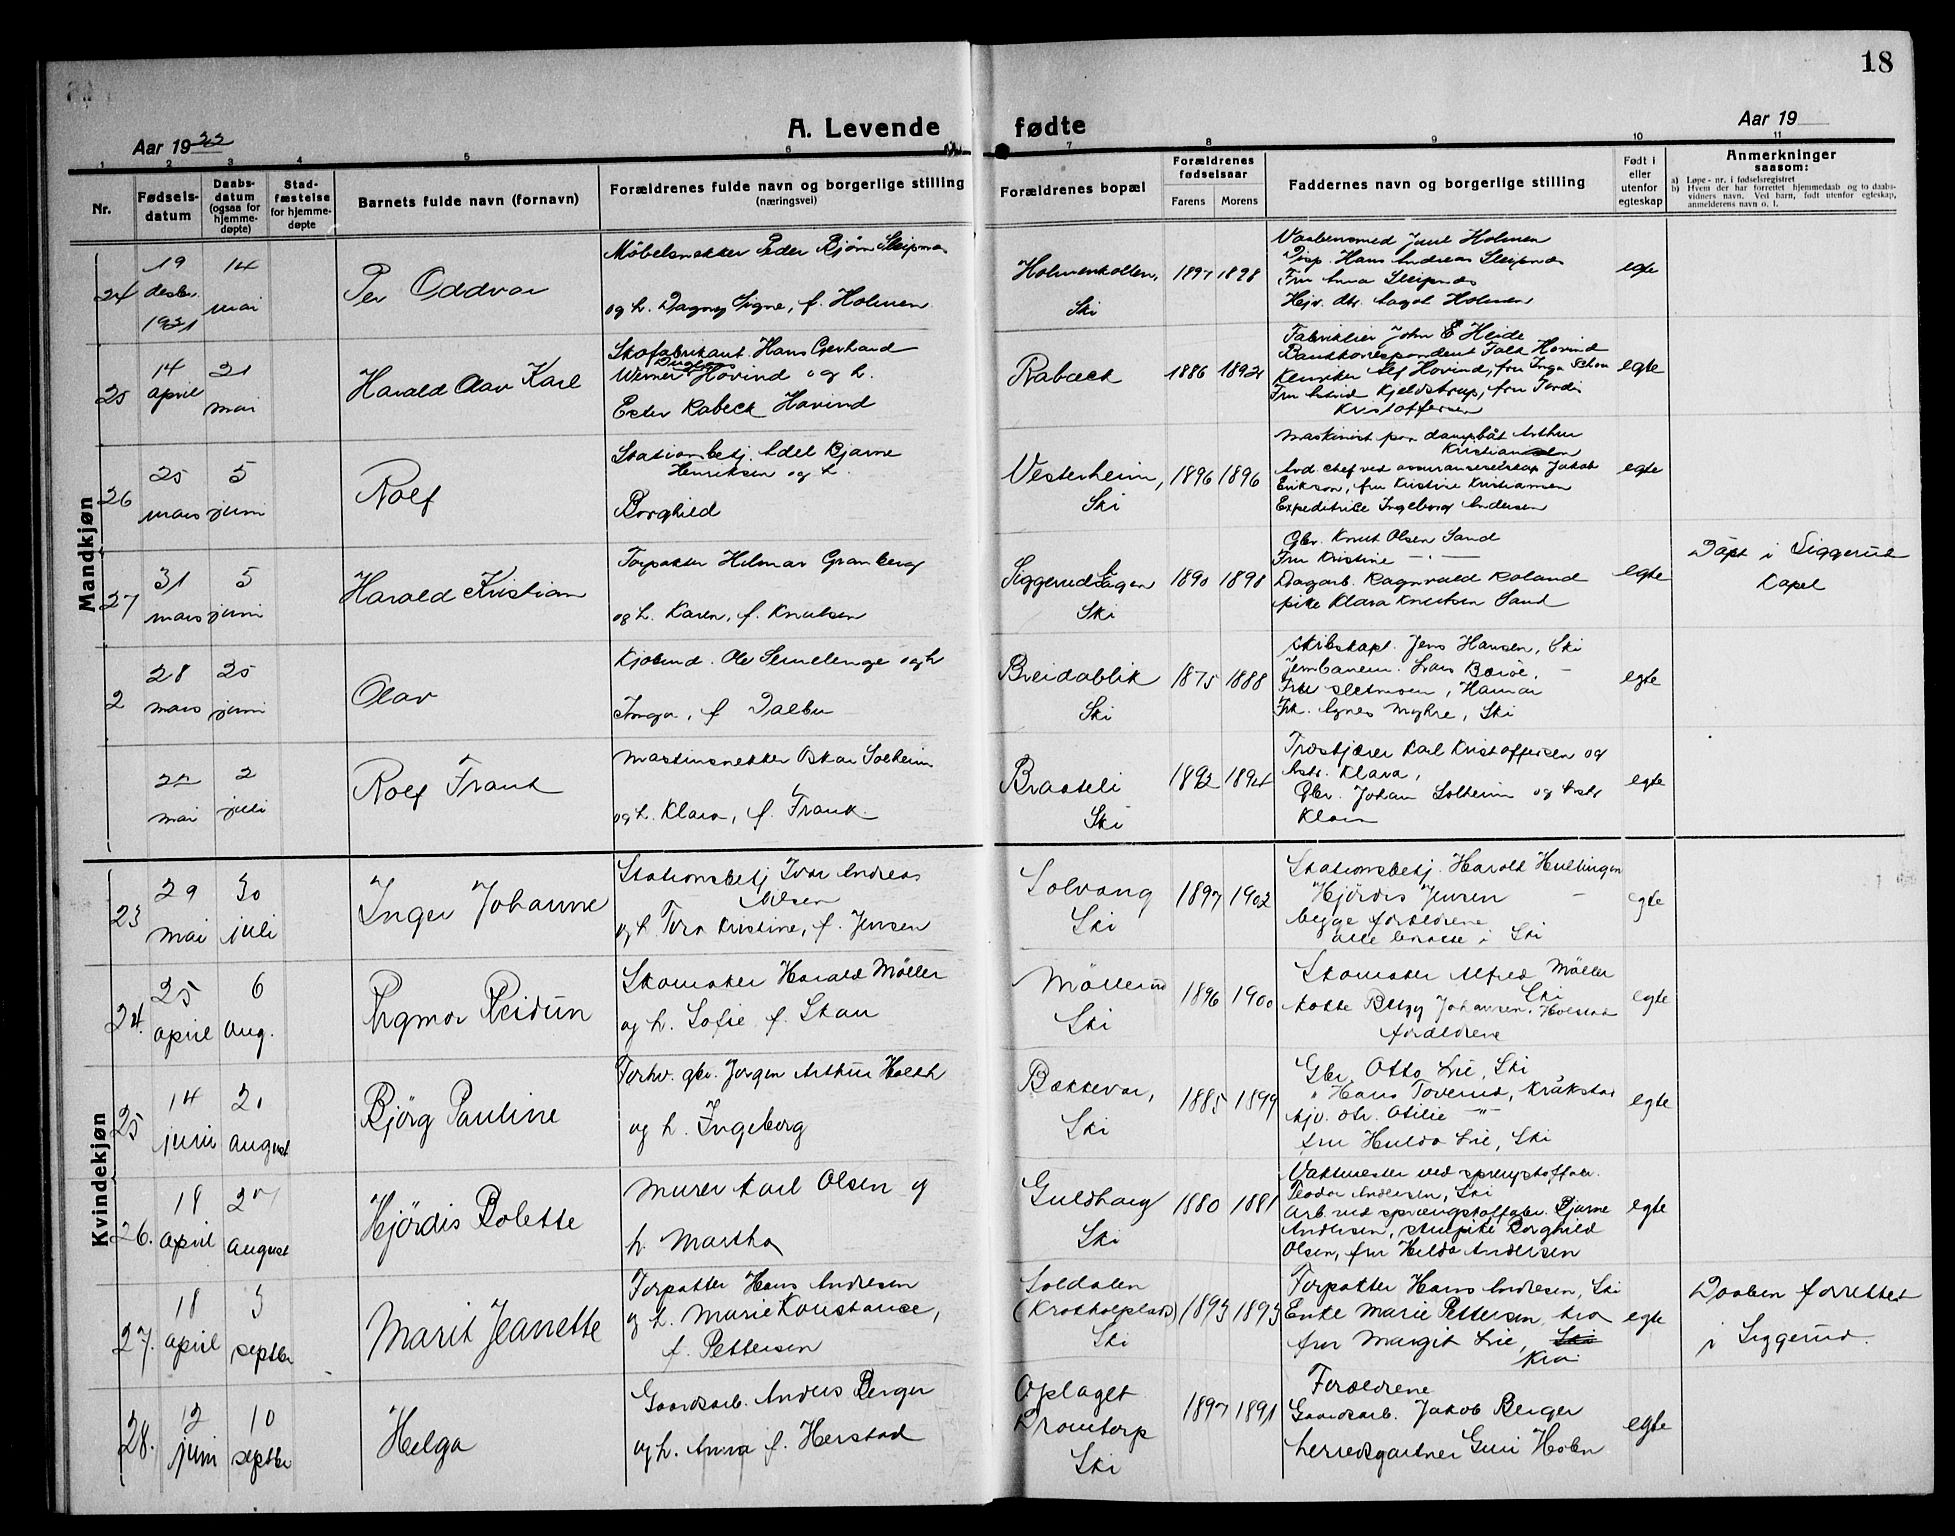 18
A. Levende fødte
Aar 1922
Aar 19
1 2 3 4 5 6 7 8 9 10 11
Nr.
Fødsels-
datum
Daabs-
datum
(ogsaa for
hjemme-
døpte)
Stad-
fæstelse
for hjemme-
døpte
Barnets fulde navn (fornavn)
Forældrenes fulde navn og borgerlige stilling
(næringsvei)
Forældrenes bopæl
Forældrenes
fødselsaar
Farens Morens
Faddernes navn og borgerlige stilling
Født i
eller
utenfor
egteskap
Anmerkninger
saasom:
a) Løpe-nr. i fødselsregistret
b) Hvem der har forrettet hjemmedaab og to daabs-
vidners navn. Ved barn, født utenfor egteskap,
anmelderens navn o. l.
Mandkjøn
24
19
desbr.
1921
14
mai
Per Oddvar
Møbelsnekker Peder Bjørn Sleipnes
og h. Dagny Signe, f. Holmen
Holmenkollen,
Ski
1897 1898
Vaabensmed Juul Holmen
Disp. Hans Andreas Sleipnes
Fru Anna Sleipnes
Hejv. dtr. Aagot Holmen
egte
25
14
april
21
mai
Harald Olav Karl
Skofabrikant Hans Gerhard
Werner Hovind og h.
Ester Rabeck Hovind
Rabæck
1886 1892
Fabrikeier John E Heide
Bankkorrespondent Falk Hovind
Kemiker Leif Hovind, fru Inga Schou
Fru Astrid Kjeldstrup, fru Jordis
Kristoffersen
egte
26
25
mars
5
juni
Rolf
Stationsbetj. Adel Bjarne
Henriksen og h.
Borghild
Vesterheim,
Ski
1896 1896
Maskinist paa dampbåt Arthur
Kristiansen
Avd. chef ved assuranseselskap Jakob
Erikson, fru Kristine Kristiansen
Expeditrice Ingeborg Andersen
egte
27
31
mars
5
juni
Harald Kristian
Forpakter Hilmar Granberg
og h. Karen, f. Knutsen
Siggerud
Ski
1890 1898
Gbr. Knut Olsen Sand
Fru Kristine —"—
Dagarb. Ragnvald Roland
pike Klara Knutsen Sand
egte
Døpt i Siggerud
Kapel
2
28
mars
25
juni
Olav
Kjøbmd. Ole Semelenge og h
Inga, f. Dalbu
Breidablik
Ski
1875 1888
Skibskapt. Jens Hansen, Ski
Jernbanem. Lars Børse, —
Frk Sletmoen, Hamar
Frk. Agnes Myhre, Ski
egte
22
mai
2
juli
Rolf Frank
Maskinsnekker Oskar Solheim
og h. Klara, f. Frank.
Braateli
Ski
1892 1894
Træskjærer Karl Kristoffersen og
hstr. Klara,
Gbr. Johan Solheim og hstr
Klara
egte
Kvindekjøn
23
29
mai
30
juli
Inger Johanne
Stationsbetj Ivar Andreas
Nilsen
og h Tora Kristine, f. Jensen
Solvang
Ski
1897 1902
Stationsbetj. Harald Hullingen
Hjördis Jensen —
begge forældrene
alle bosatte i Ski
egte
24.
25
april
6
aug.
Ragmor Reidun
Skomaker Harald Möller
og h. Sofie f. Skau
Möllerud
Ski
1896 1900
Skomaker Alfred Möller
Ski
Lotte Bugg Johansen, Holstad
forældrene
egte
25
14
juni
20
august
Björg Pauline
Forhv. gbr. Jørgen Arthur Holth
og h. Ingeborg
Bækkevar,
Ski
1885 1899
Gbr Otto Lie, Ski
" Hans Toverud, Kråkstad
hjv. dtr. Otilie —"—
fru Hulda Lie, Ski
egte
26.
18
april
27
august
Hjördis Bolette
Murer Karl Olsen og
h. Martha
Guldhaug
Ski
1880 1881
Vaktmester ved sprengstoffabr.
Teodor Andersen, Ski
Arb. ved sprængstoffabr. Bjarne
Andersen, stuepike Borghild
Olsen, fru Hilda Andersen
egte
27.
18
april
3
septbr
Marit Jeanette
Forpakter Hans Andresen
og h. Marie Konstanse,
f. Pettersen
Soldalen
(Krokholplads)
Ski
1893 1893
Forpakter Hans Andresen, Ski
Enke Marie Pettersen, Kra
fru Margit Lie, Ski
Kra
egte
Daaben forrettet
i Siggerud.
28.
12
juni
10
septbr
Helga
Gaardsarb. Anders Berger
og h. Anna f. Herstad
Oplaget
Drømtorp
Ski
1897 1891
Forældrene
Gaardsarb. Jakob Berger
herredsgartner Guri Holm
egte